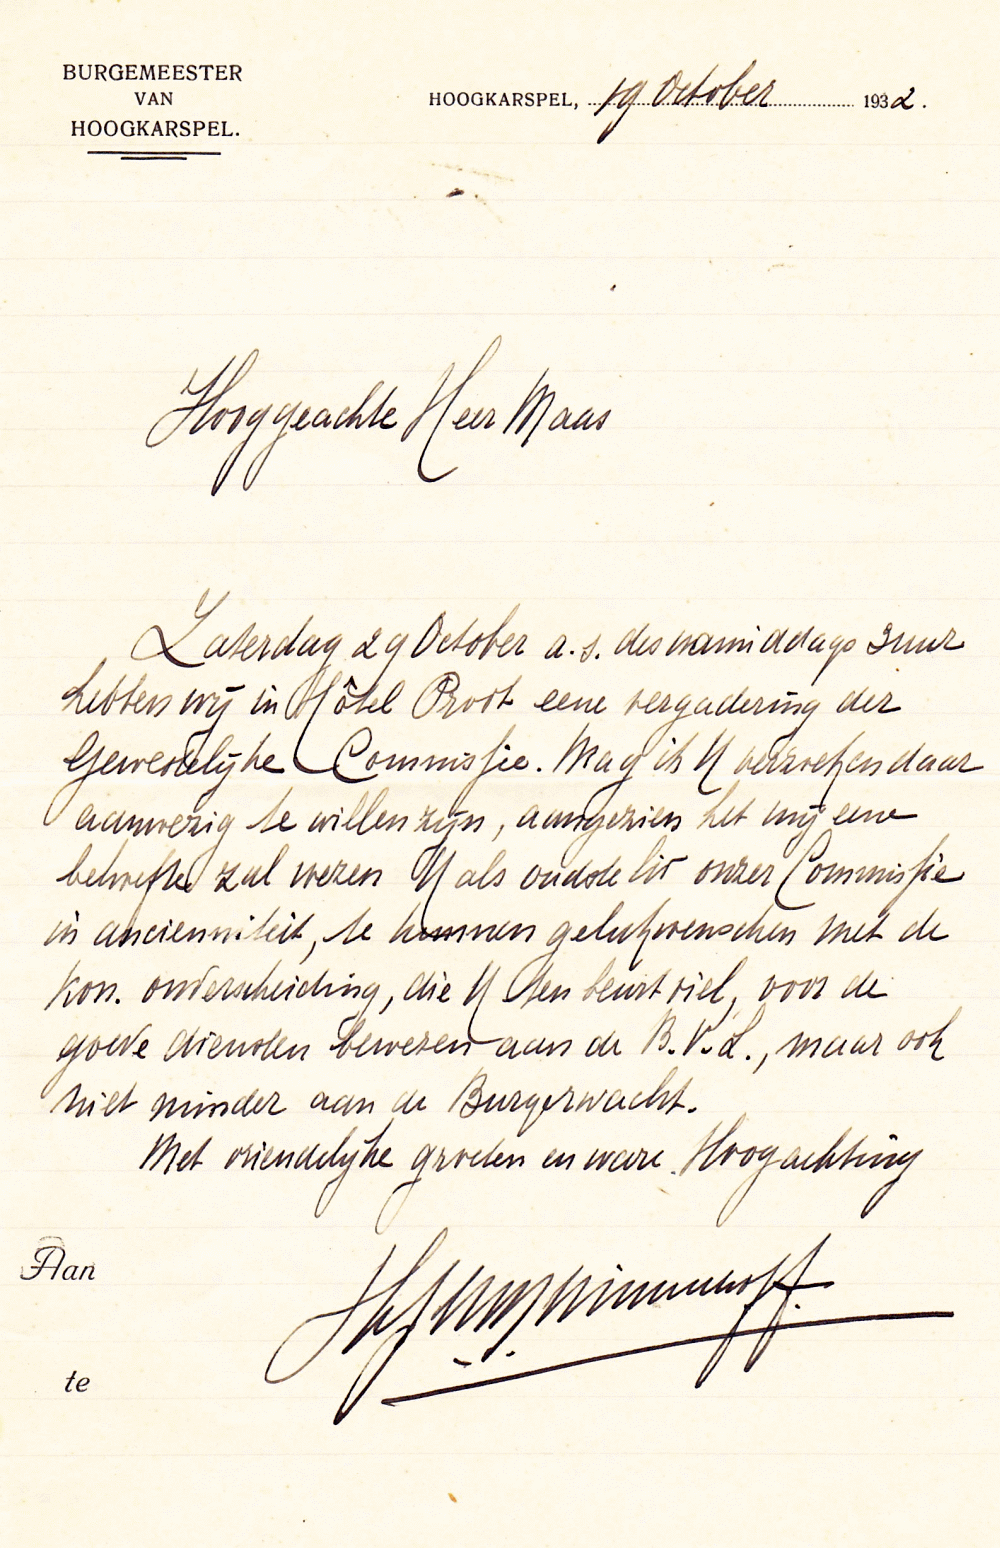 BURGEMEESTER
VAN
HOOGKARSPEL.
HOOGKARSPEL, 19 October 1932.
Hooggeachte Heer Maas
Zaterdag 29 October a.s. des namiddags 3 uur
hebben wij in Hôtel Proot eene vergadering der
Gewestelijke Commissie. Mag ik U verzoeken daar
aanwezig te willen zijn, aangezien het mij eene
behoefte zal wezen U als oudste lid onzer Commissie
in ancienniteit, te kunnen gelukwenschen met de
Kon. onderscheiding, die U ten beurt viel, voor de
goede diensten bewezen aan de B.V.L., maar ook
niet minder aan de Burgerwacht.
Met vriendelijke groeten en ware Hoogachting
Aan
te